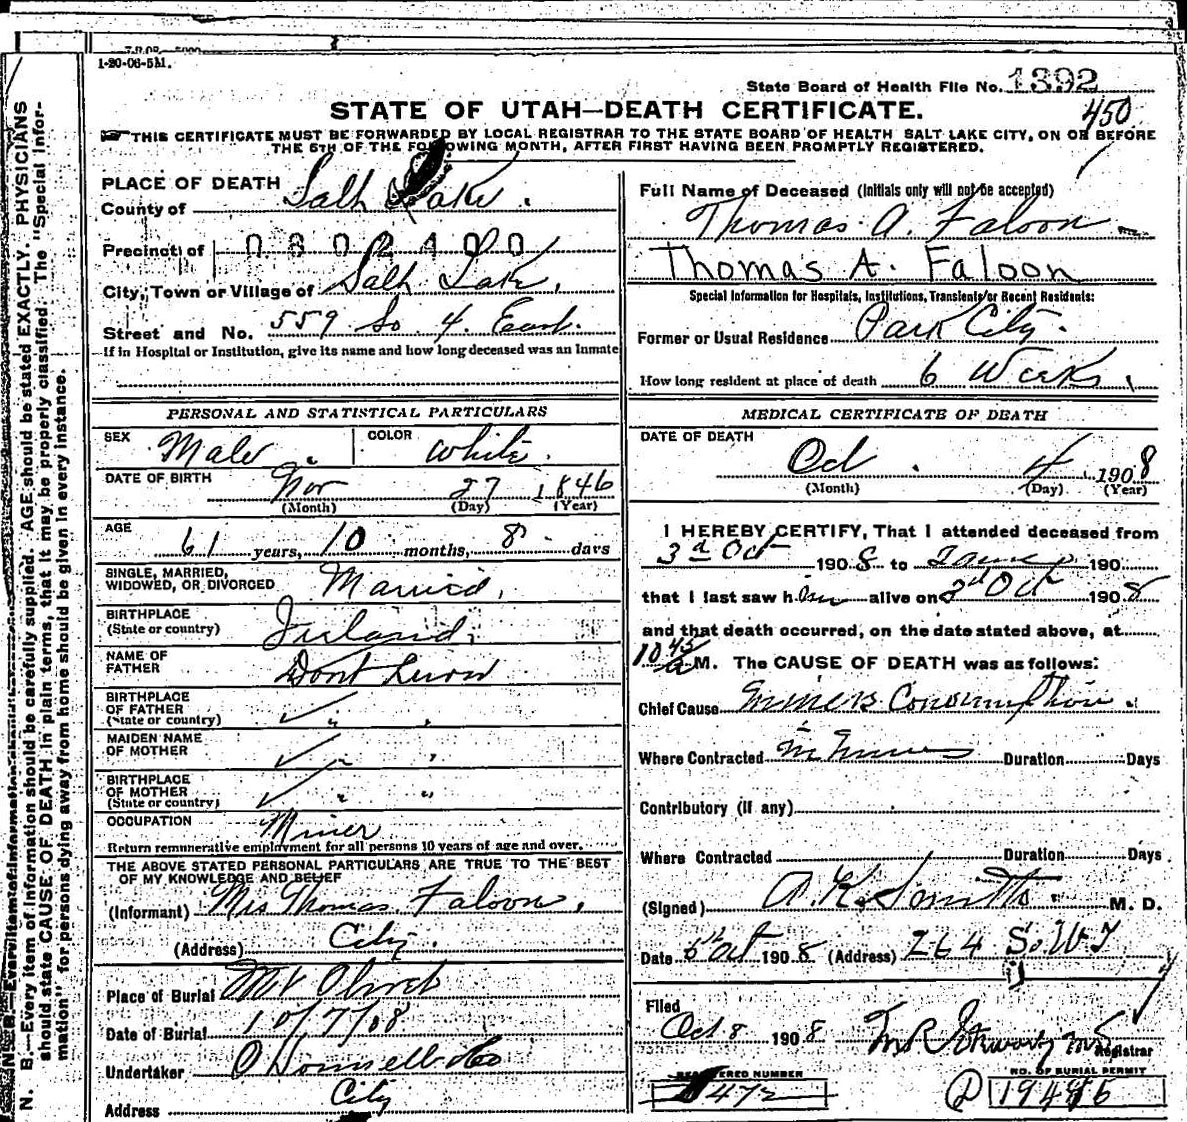 1-20-06-5M.
State Board of Health File No. 1392
450
STATE OF UTAH—DEATH CERTIFICATE.
THIS CERTIFICATE MUST BE FORWARDED BY LOCAL REGISTRAR TO THE STATE BOARD OF HEALTH SALT LAKE CITY, ON OR BEFORE
THE 5TH OF THE FOLLOWING MONTH, AFTER FIRST HAVING BEEN PROMPTLY REGISTERED.
N. B.—Every item of information should be carefully supplied. AGE should be stated EXACTLY. PHYSICIANS
should state CAUSE OF DEATH in plain terms, that it may be properly classified. The "Special Infor-
mation" for persons dying away from home should be given in every instance.
PLACE OF DEATH
County of Salt Lake.
Precinct of 0602400
City, Town or Village of Salt Lake.
Street and No. 559 So 4 East.
If in Hospital or Institution, give its name and how long deceased was an Inmate
PERSONAL AND STATISTICAL PARTICULARS
SEX Male COLOR White.
DATE OF BIRTH Nov 27 1846
(Month) (Day) (Year)
AGE
61 years, 10 months, 8 days
SINGLE, MARRIED,
WIDOWED, OR DIVORCED Married.
BIRTHPLACE
(State or country) Ireland.
NAME OF
FATHER Dont Know
BIRTHPLACE
OF FATHER
(State or country) ✓ " "
MAIDEN NAME
OF MOTHER ✓ " "
BIRTHPLACE
OF MOTHER
(State or country) ✓ " "
OCCUPATION Miner
Return remunerative employment for all persons 10 years of age and over.
THE ABOVE STATED PERSONAL PARTICULARS ARE TRUE TO THE BEST
OF MY KNOWLEDGE AND BELIEF
(Informant) Mrs Thomas Faloon.
(Address) City.
Place of Burial Mt Olivet
Date of Burial 10/7/08
Undertaker O Donnell & Co
Address City
Full Name of Deceased (Initials only will not be accepted)
Thomas A. Faloon
Thomas A. Faloon
Special Information for Hospitals, Institutions, Transients or Recent Residents:
Former or Usual Residence Park City.
How long resident at place of death 6 Weeks.
MEDICAL CERTIFICATE OF DEATH
DATE OF DEATH
Oct. 4 1908
(Month) (Day) (Year)
I HEREBY CERTIFY, That I attended deceased from
3d Oct 1908 to 190
that I last saw him alive on 3d Oct 1908
and that death occurred, on the date stated above, at
10 45 a M. The CAUSE OF DEATH was as follows:
Chief Cause Miners Consumption.
Where Contracted In Mines Duration Days
Contributory (if any)
Where Contracted Duration Days
(Signed) M. D.
Date 6th Oct 1908 (Address) 264 So. W T
Filed
Oct 8 1908
Registrar
REGISTERED NUMBER NO. OF BURIAL PERMIT
472